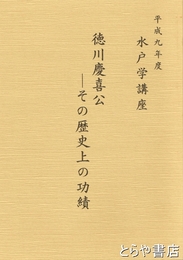 平成九年度
水戸学講座
徳川慶喜公
―その歴史上の功績
とらや書店